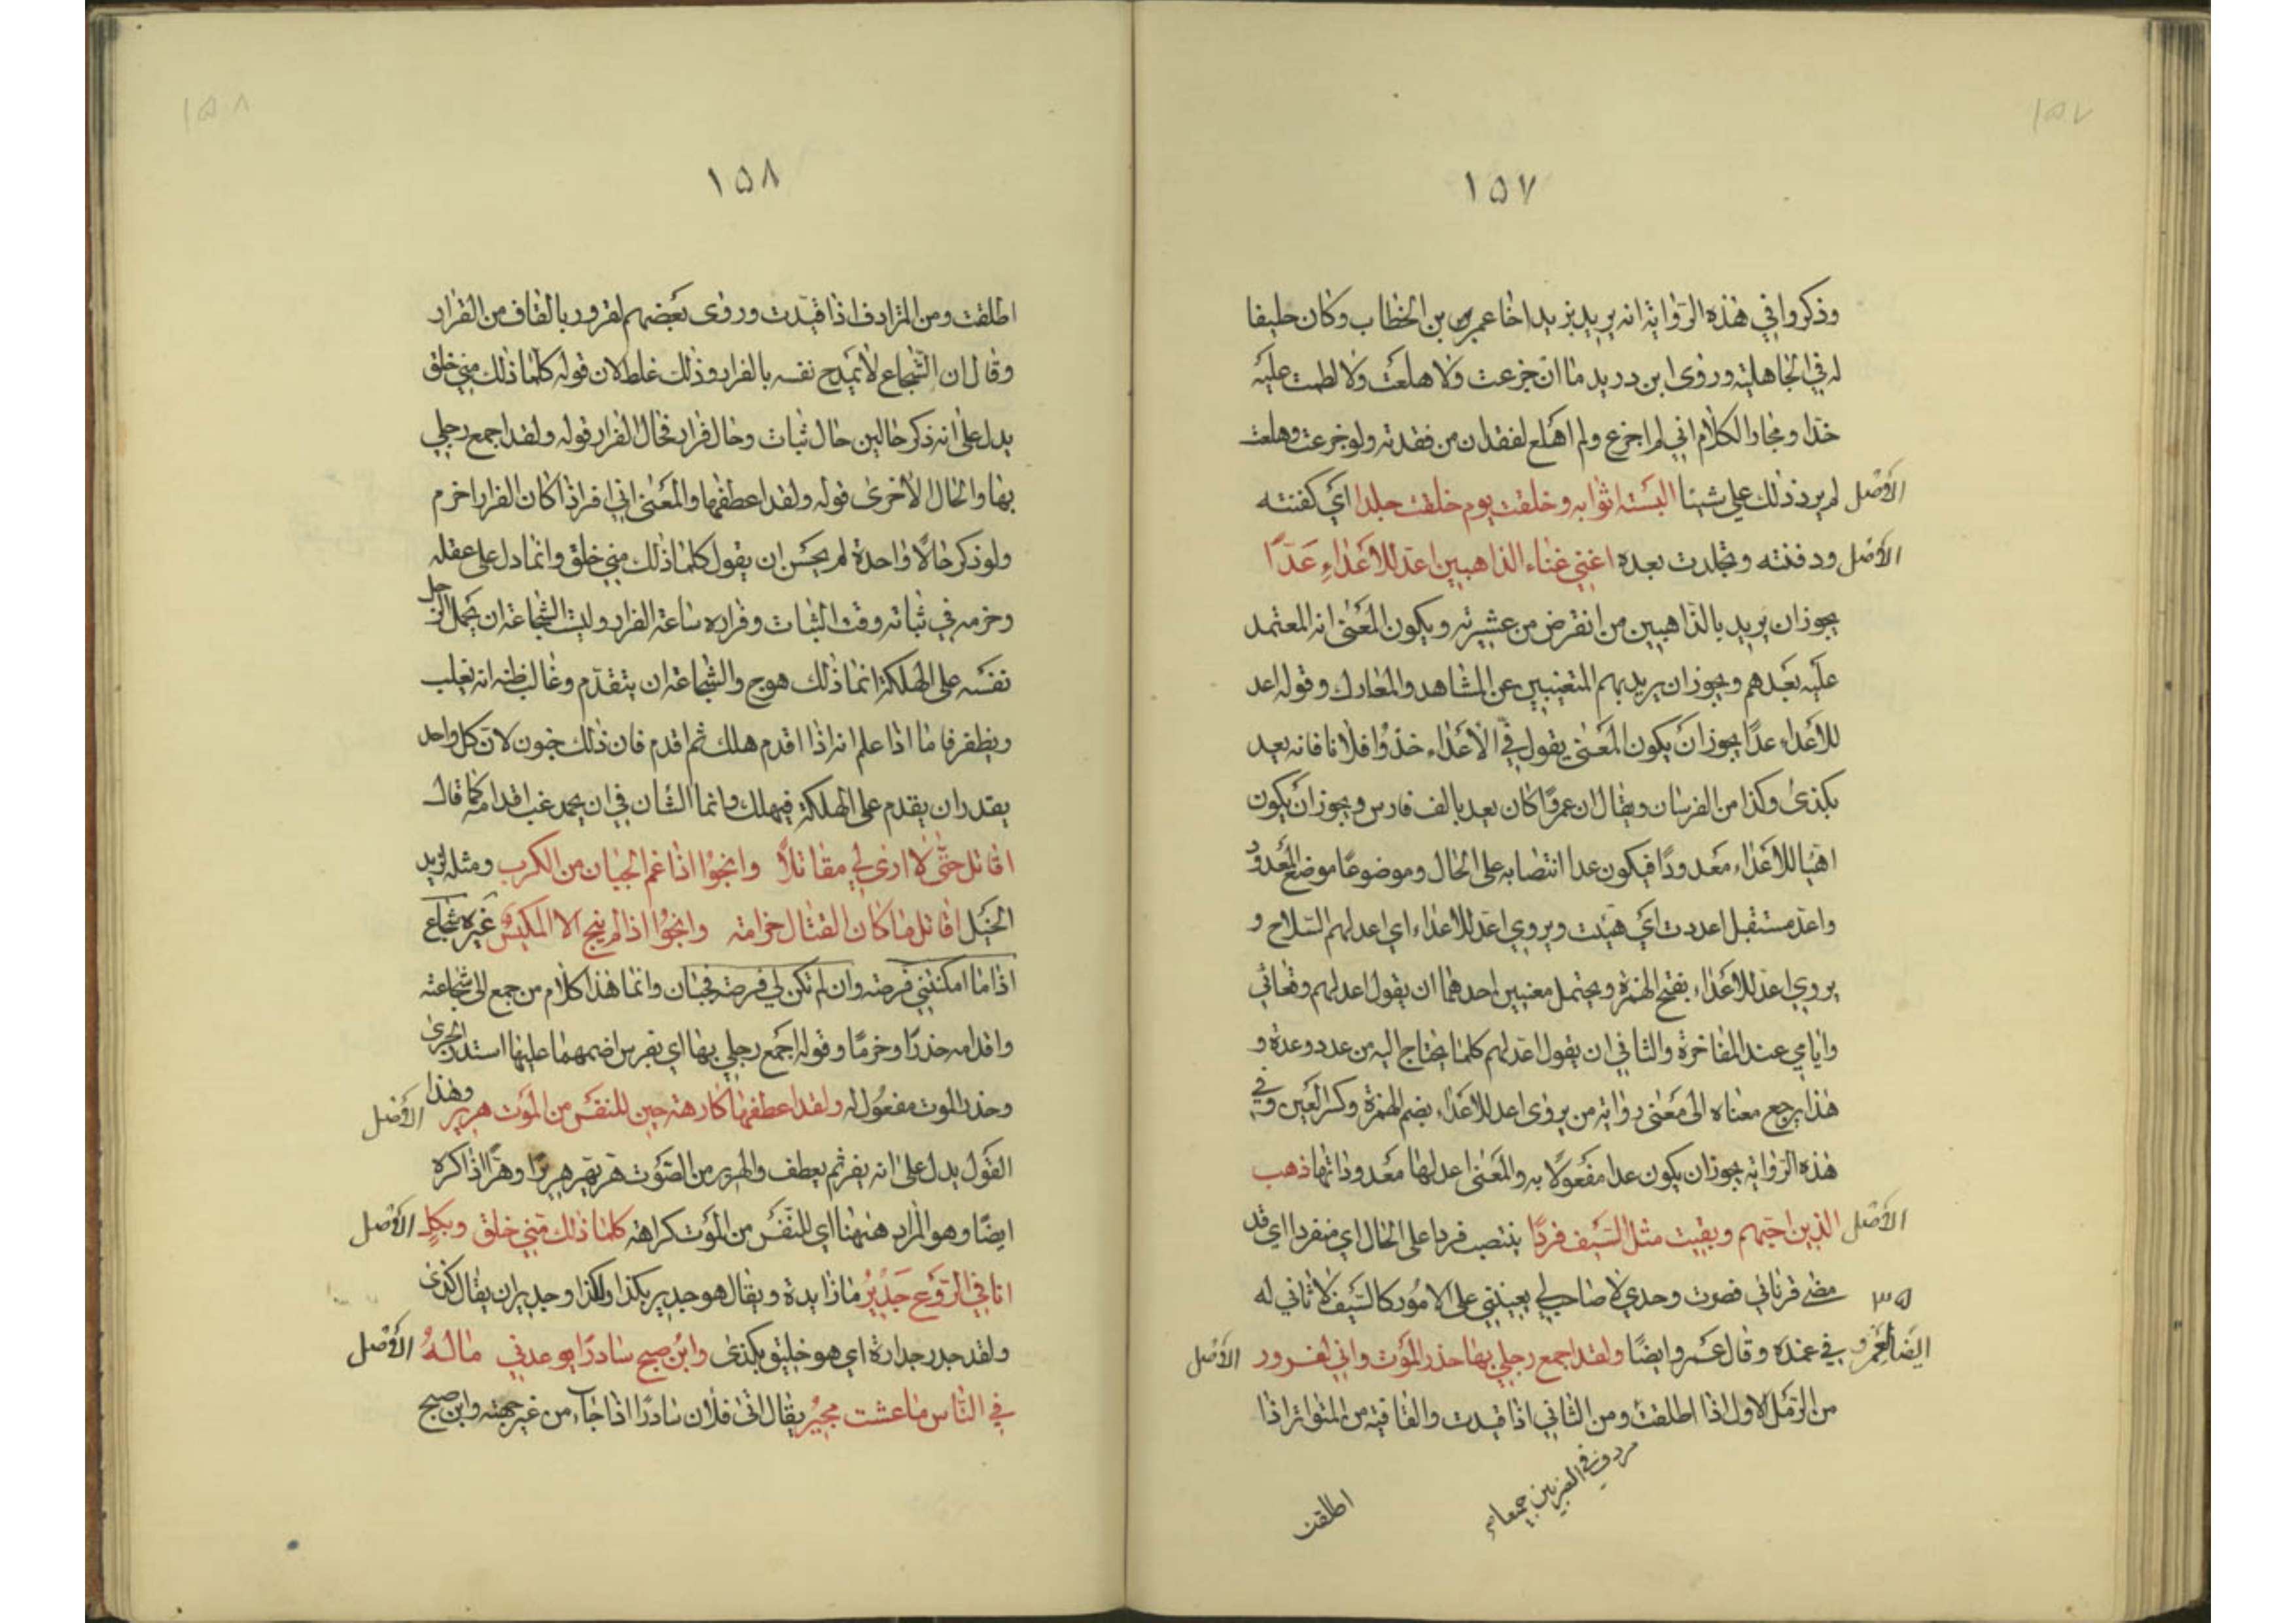 ١٥٧
وذكروا في هذه الرواية انه يريد بزيد اخا عمر بن الخطاب وكان حليفا
له في الجاهلية وروى ابن دريد ما ان جزعت ولا هلعت ولا لطمت عليه
خدا ومجاز الكلام اني لم اجزع ولم اهلع لفقدان من فقدته ولو جزعت وهلعت
الأصل لم يرد ذلك علي شيئا البسته اثوابه وخلقت يوم خلقت جلدا اي كفنته
الأصل ودفنته وتجلدت بعده اغني غناء الذاهبين اعد للأعداء عدّا
يجوز ان يريد بالذاهبين من انقرض من عشيرته ويكون المعنى انه المعتمد
عليه بعدهم ويجوز ان يريد بهم المتغيبين عن المشاهد والمعارك وقوله اعد
للأعداء عدّا يجوز ان يكون المعنى يقول في الأعداء خذوا فلانا فانه يعد
بكذى وكذا من الفرسان ويقال ان عمرًا كان يعد بالف فارس ويجوز ان يكون
اهيا للأعداء معدودًا فيكون عدا انتصابه على الحال وموضوعًا موضع المعدود
واعد مستقبل اعددت اي هيئت ويروي اعد للأعداء اي اعد لهم السلاح و
يروي اعد للأعداء بفتح الهمزة ويحتمل معنيين احدهما ان يقول اعد لهم وقعاتي
وايامي عند المفاخرة والثاني ان يقول اعد لهم كلما يحتاج اليه من عدد وعدة و
هذا يرجع معناه الى معنى رواية من يروى اعد للأعداء بضم الهمزة وكسر العين وفي
هذه الرواية يجوز ان يكون عدا مفعولًا به والمعنى اعد لها معدوداتها ذهب
الأصل الذين احبهم وبقيت مثل السيف فردًا ينتصب فردا على الحال اي منفردا اي قد
٣٥ مضى قرناني فصرت وحدي لا صاحب لي يعينني على الامور كالسيف لا ثاني له
ايضا لعمرو في غمده وقال عمرو ايضًا ولقد اجمع رجلي بها حذر الموت واني لفرور الأصل
من الرمل الاول اذا اطلقت ومن الثاني اذا قيدت والقافية من المتواتر اذا
مردف في الضربين جميعا
اطلقت
١٥٨
اطلقت ومن المترادف اذا قيدت وروى بعضهم لقرور بالقاف من القرار
وقال ان الشجاع لا يمدح نفسه بالفرار وذلك غلط لان قوله كلما ذلك مني خلق
يدل على انه ذكر حالين حال ثبات وحال فرار فحال الفرار قوله ولقد اجمع رجلي
بها والحال الأخرى قوله ولقد اعطفها والمعنى اني افر اذا كان الفرار احزم
ولو ذكر حالًا واحدة لم يحسن ان يقول كلما ذلك مني خلق وانما دل على عقله
وحزمه في ثباته وقت الثبات وفراره ساعة الفرار وليت الشجاعة ان يحمل الرجل
نفسه على الهلكة انما ذلك هوج والشجاعة ان يتقدم وغالب ظنه انه يغلب
ويظفر فاما اذا علم انه اذا اقدم هلك ثم اقدم فان ذلك جنون لان كل واحد
يقدر ان يقدم على الهلكة فيهلك وانما الشأن في ان يحمد غب اقدامه كما قال
اقاتل حتى لا ارى لي مقاتلًا وانجوا اذا غم الجبان من الكرب ومثله لزيد
الخيل اقاتل ما كان القتال حزامة وانجوا اذا لم ينج الا المكيس غيره شجاع
اذا ما امكنتني فرصة وان لم تكن لي فرصة فجبان وانما هذا كلام من جمع الى شجاعته
واقدامه حذرًا وحزمًا وقوله اجمع رجلي بها اي بفرس اضمهما عليها استدر الجرى
وحذر الموت مفعول له ولقد اعطفها كارهة حين للنفس من الموت هرير وهذا الأصل
القول يدل على انه يفر ثم يعطف والهرير من الصوت هر يهر هريرًا وهرًّا اذا كره
ايضًا وهو المراد ههنا اي للنفس من الموت كراهة كلما ذلك مني خلق وبكلٍ الأصل
انا في الروع جدير ما زايدة ويقال هو جدير بكذا ولكذا وجدير ان يقال كذى
ولقد جدر جدارة اي هو خليق بكذى وابن صبح سادرًا يوعدني ماله الأصل
في الناس ما عشت مجير يقال اتى فلان سادرًا اذا جاء من غير جهته وابن صبح